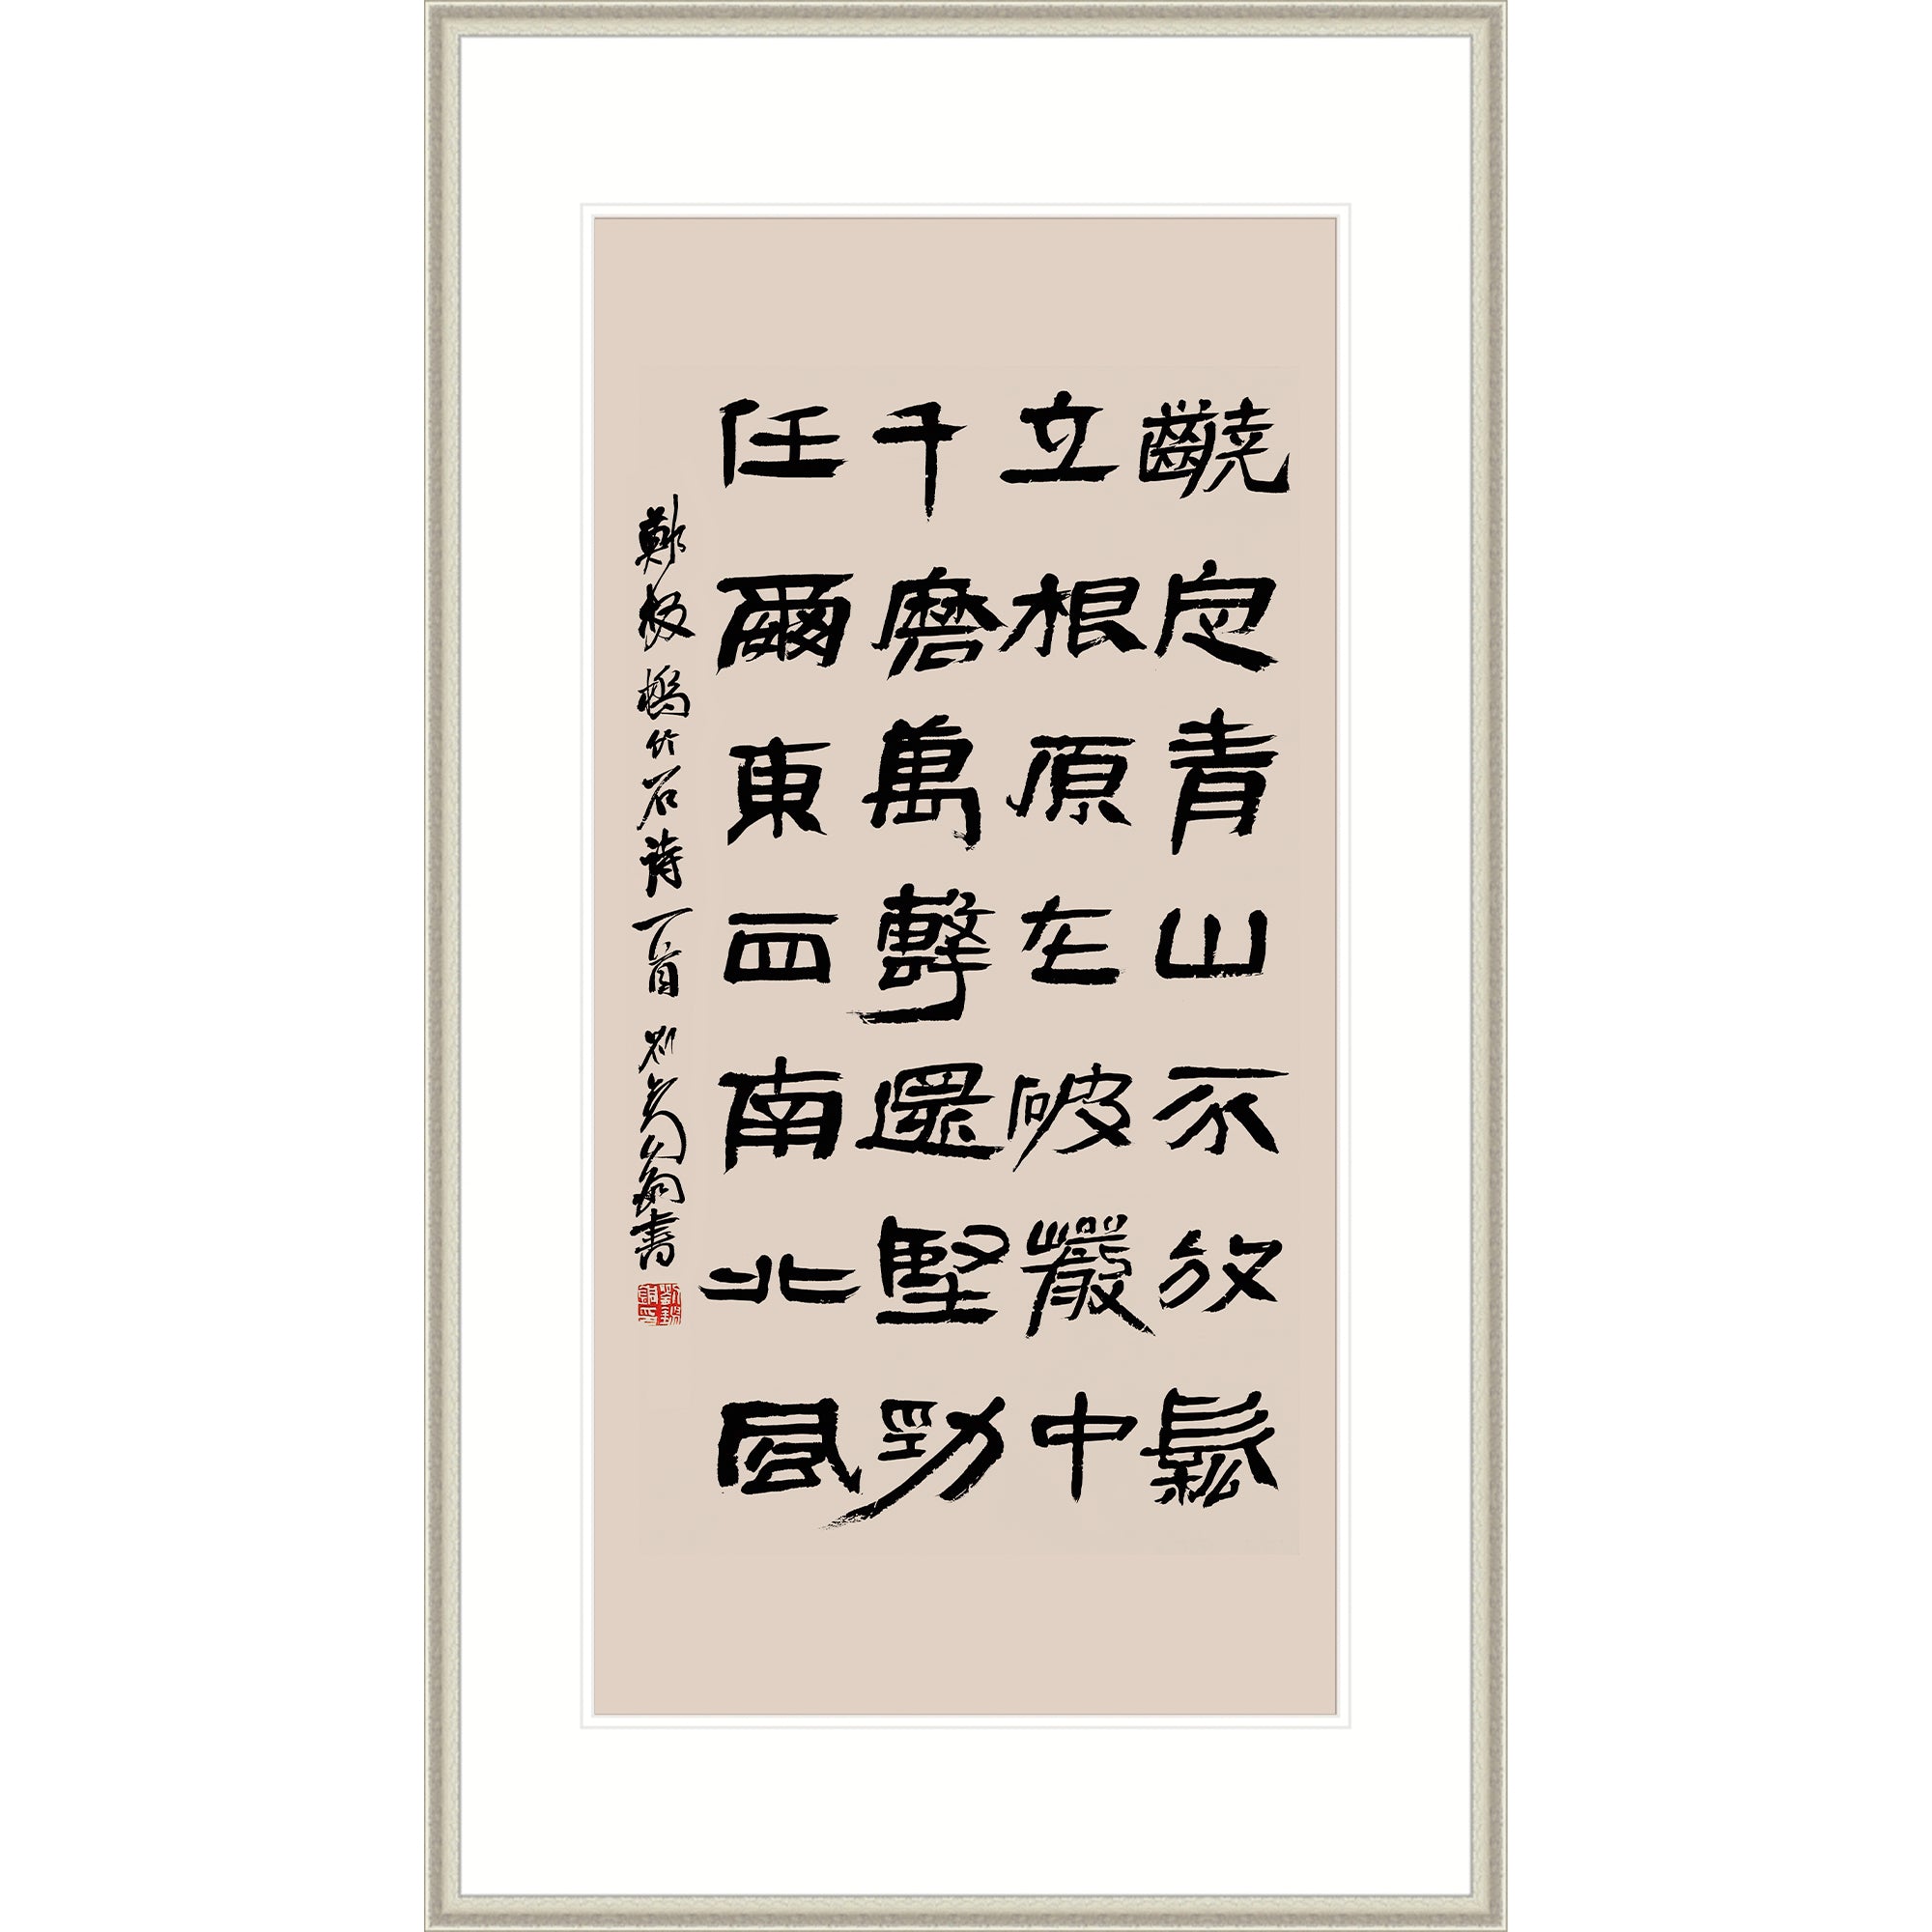 齩定青山不放鬆
立根原在破巖中
千磨萬擊還堅勁
任爾東西南北風
鄭板橋竹石詩一首 劉 書